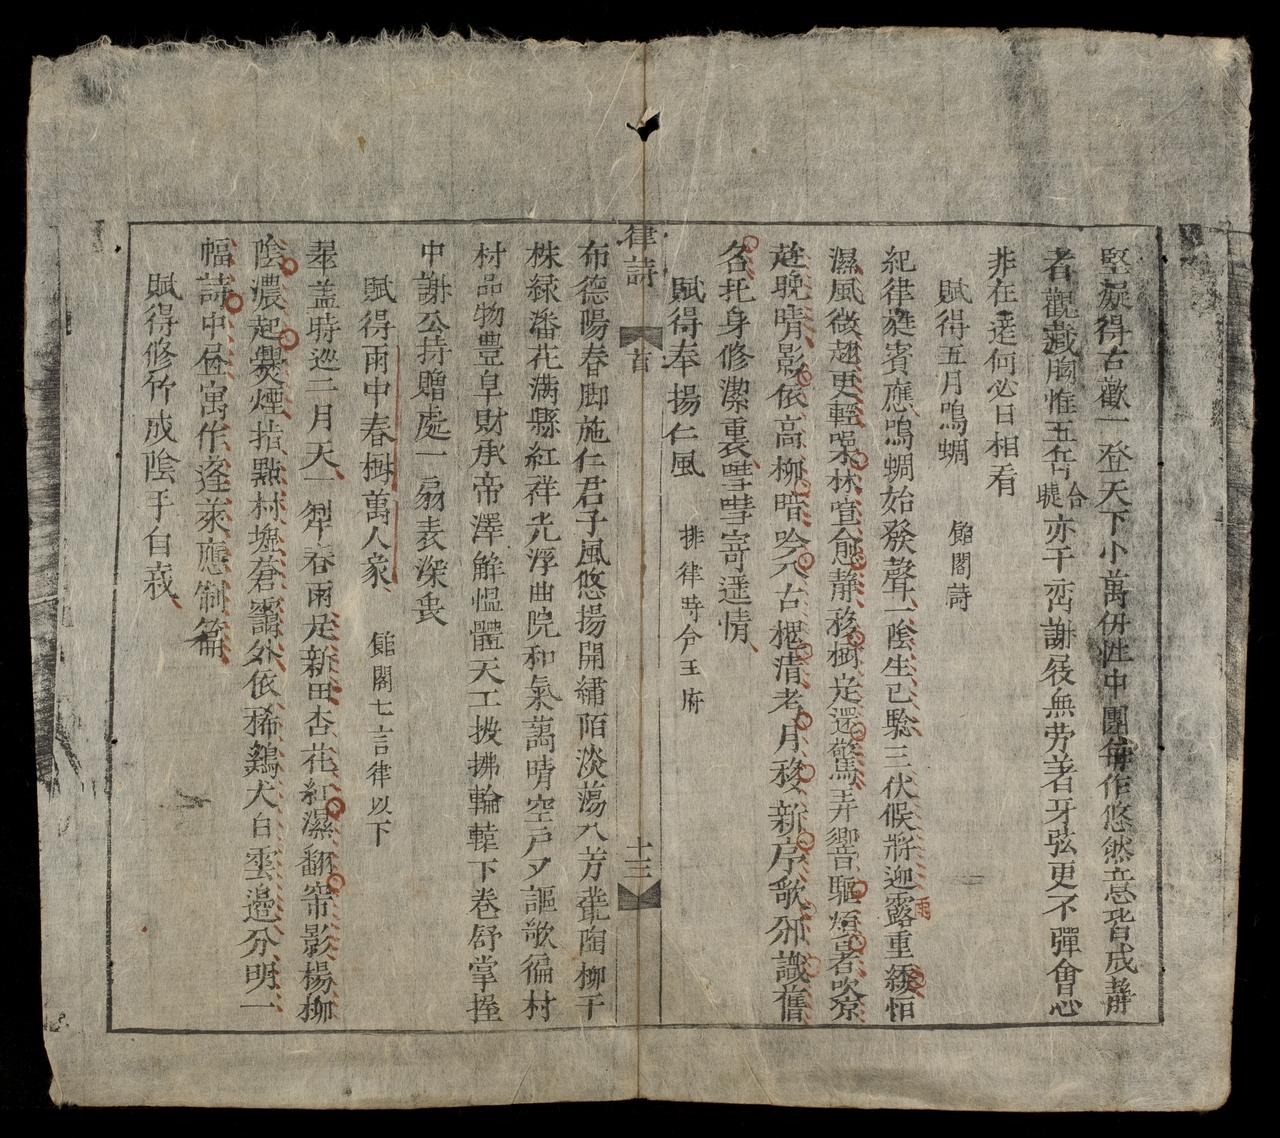 堅凝得古歡一登天下小萬仞性中團每作悠然意皆成靜
者觀藏胸惟五岳合 亦千巒謝屐無劳著牙弦更不彈會心
非在遠何必日相看
賦得五月鳴蜩 館閣詩
紀律蕤賓應鳴蜩始發聲一陰生已驗三伏候將迎露重緌怕
雨
濕風微翅更輕噪林喧愈靜移樹定還驚弄響驅煩暑吹凉
趁晚晴影依高柳暗吟入古槐清老月移新序歌邠識舊
名托身修潔裏嘒嘒寄遥情
賦得奉揚仁風 排律時今王府
律詩
首
十三
布德陽春脚施仁君子風悠揚開繡陌淡蕩入芳叢陶柳千
株緑潘花滿縣紅祥光浮曲院和氣藹晴空戸夕謳歌徧村
材品物豊阜財承帝澤解慍體天工披拂輪轅下卷舒掌握
中謝公持贈處一扇表深衷
賦得雨中春樹萬人家 館閣七言律以下
翠盖時巡二月天一犁春雨足新田杏花紅濕翻帘影楊柳
陰濃起爨煙指點林墟蒼靄外依稀鷄犬白雲邉分明一
幅詩中畫寓作蓬萊應制篇
賦得修竹成陰手自栽